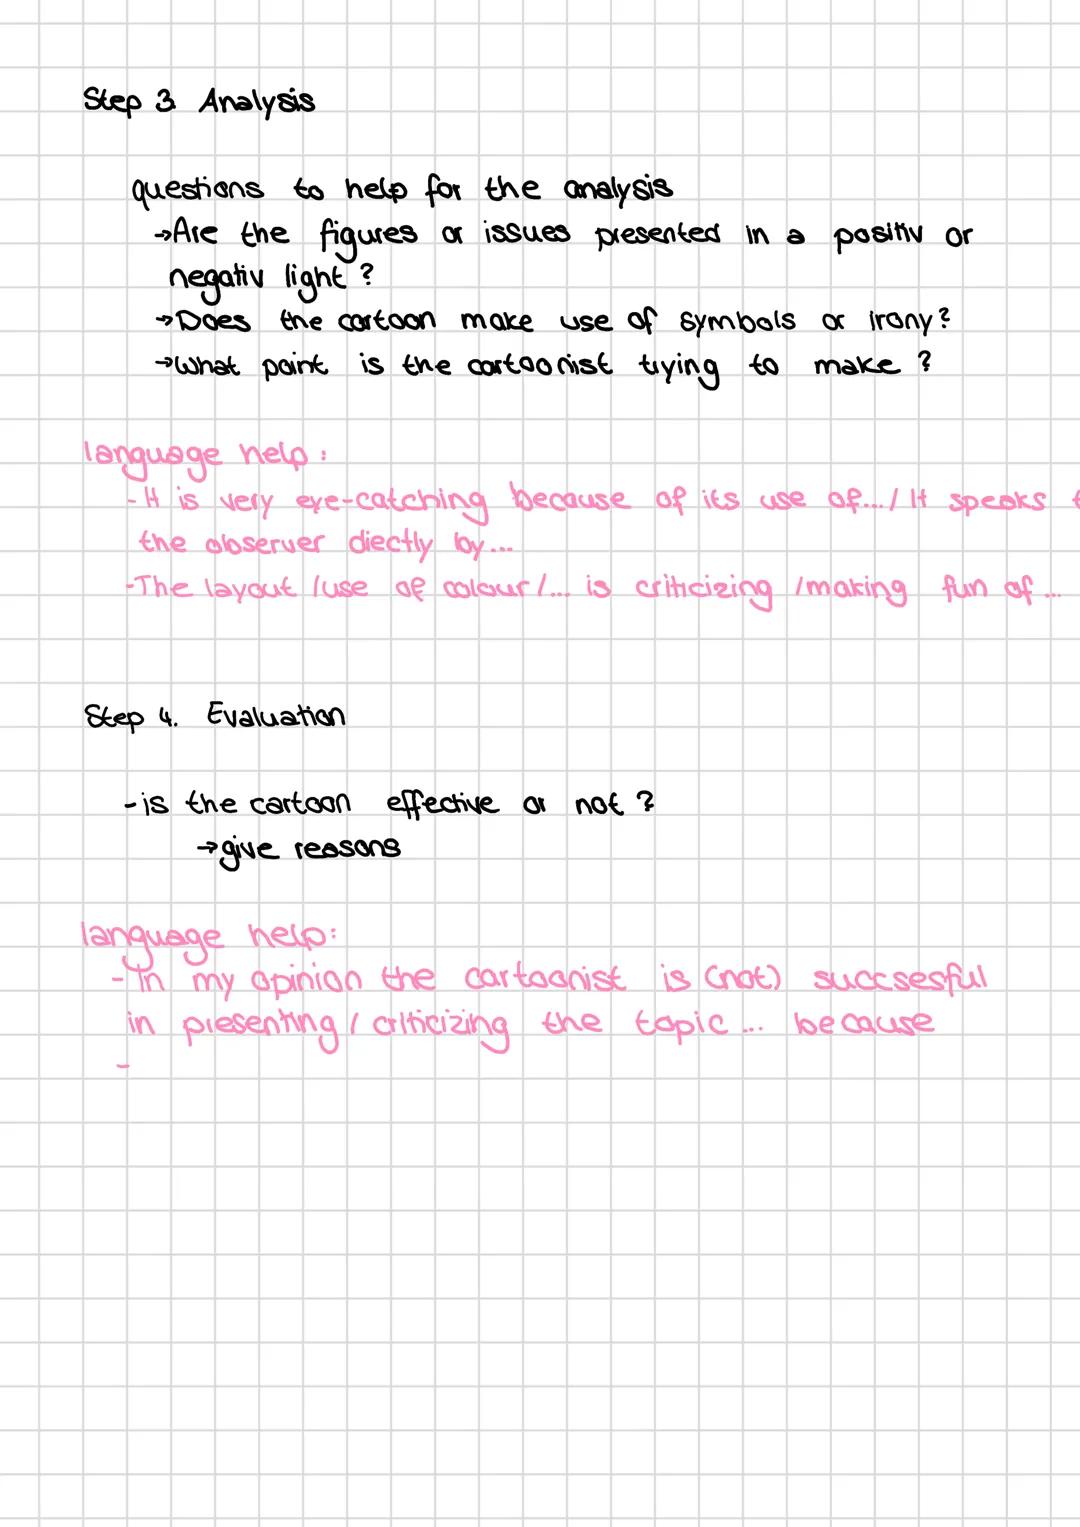 Step 3. Analysis
questions to help for the analysis
→Are the figures or issues presented in a positiv or
negativ light?
→Does the cartoon make use of symbols or irony?
→What point is the cartoonist trying to make?
language help:
-It is very eye-catching because of its use of.../ It speaks
the observer diectly by...
-The layout /use of colour/... is criticizing /making fun of...
Step 4. Evaluation
-is the cartoon effective or not?
→give reasons
language help:
-In my opinion the cartoonist is (not) succsesful
in presenting / criticizing the topic ... because
-